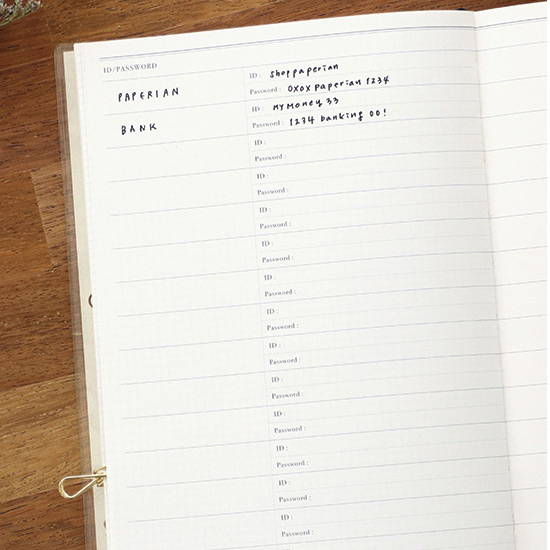 ID/PASSWORD
PAPERIAN
ID : shoppaperian
Password : oxox paperian 1234
BANK
ID : MyMoney 33
Password : 1234 banking 00!
ID :
Password :
ID :
Password :
ID :
Password :
ID :
Password :
ID :
Password :
ID :
Password :
ID :
Password :
ID :
Password :
ID :
Password :
ID :
Password :
ID :
Password :
ID :
Password :